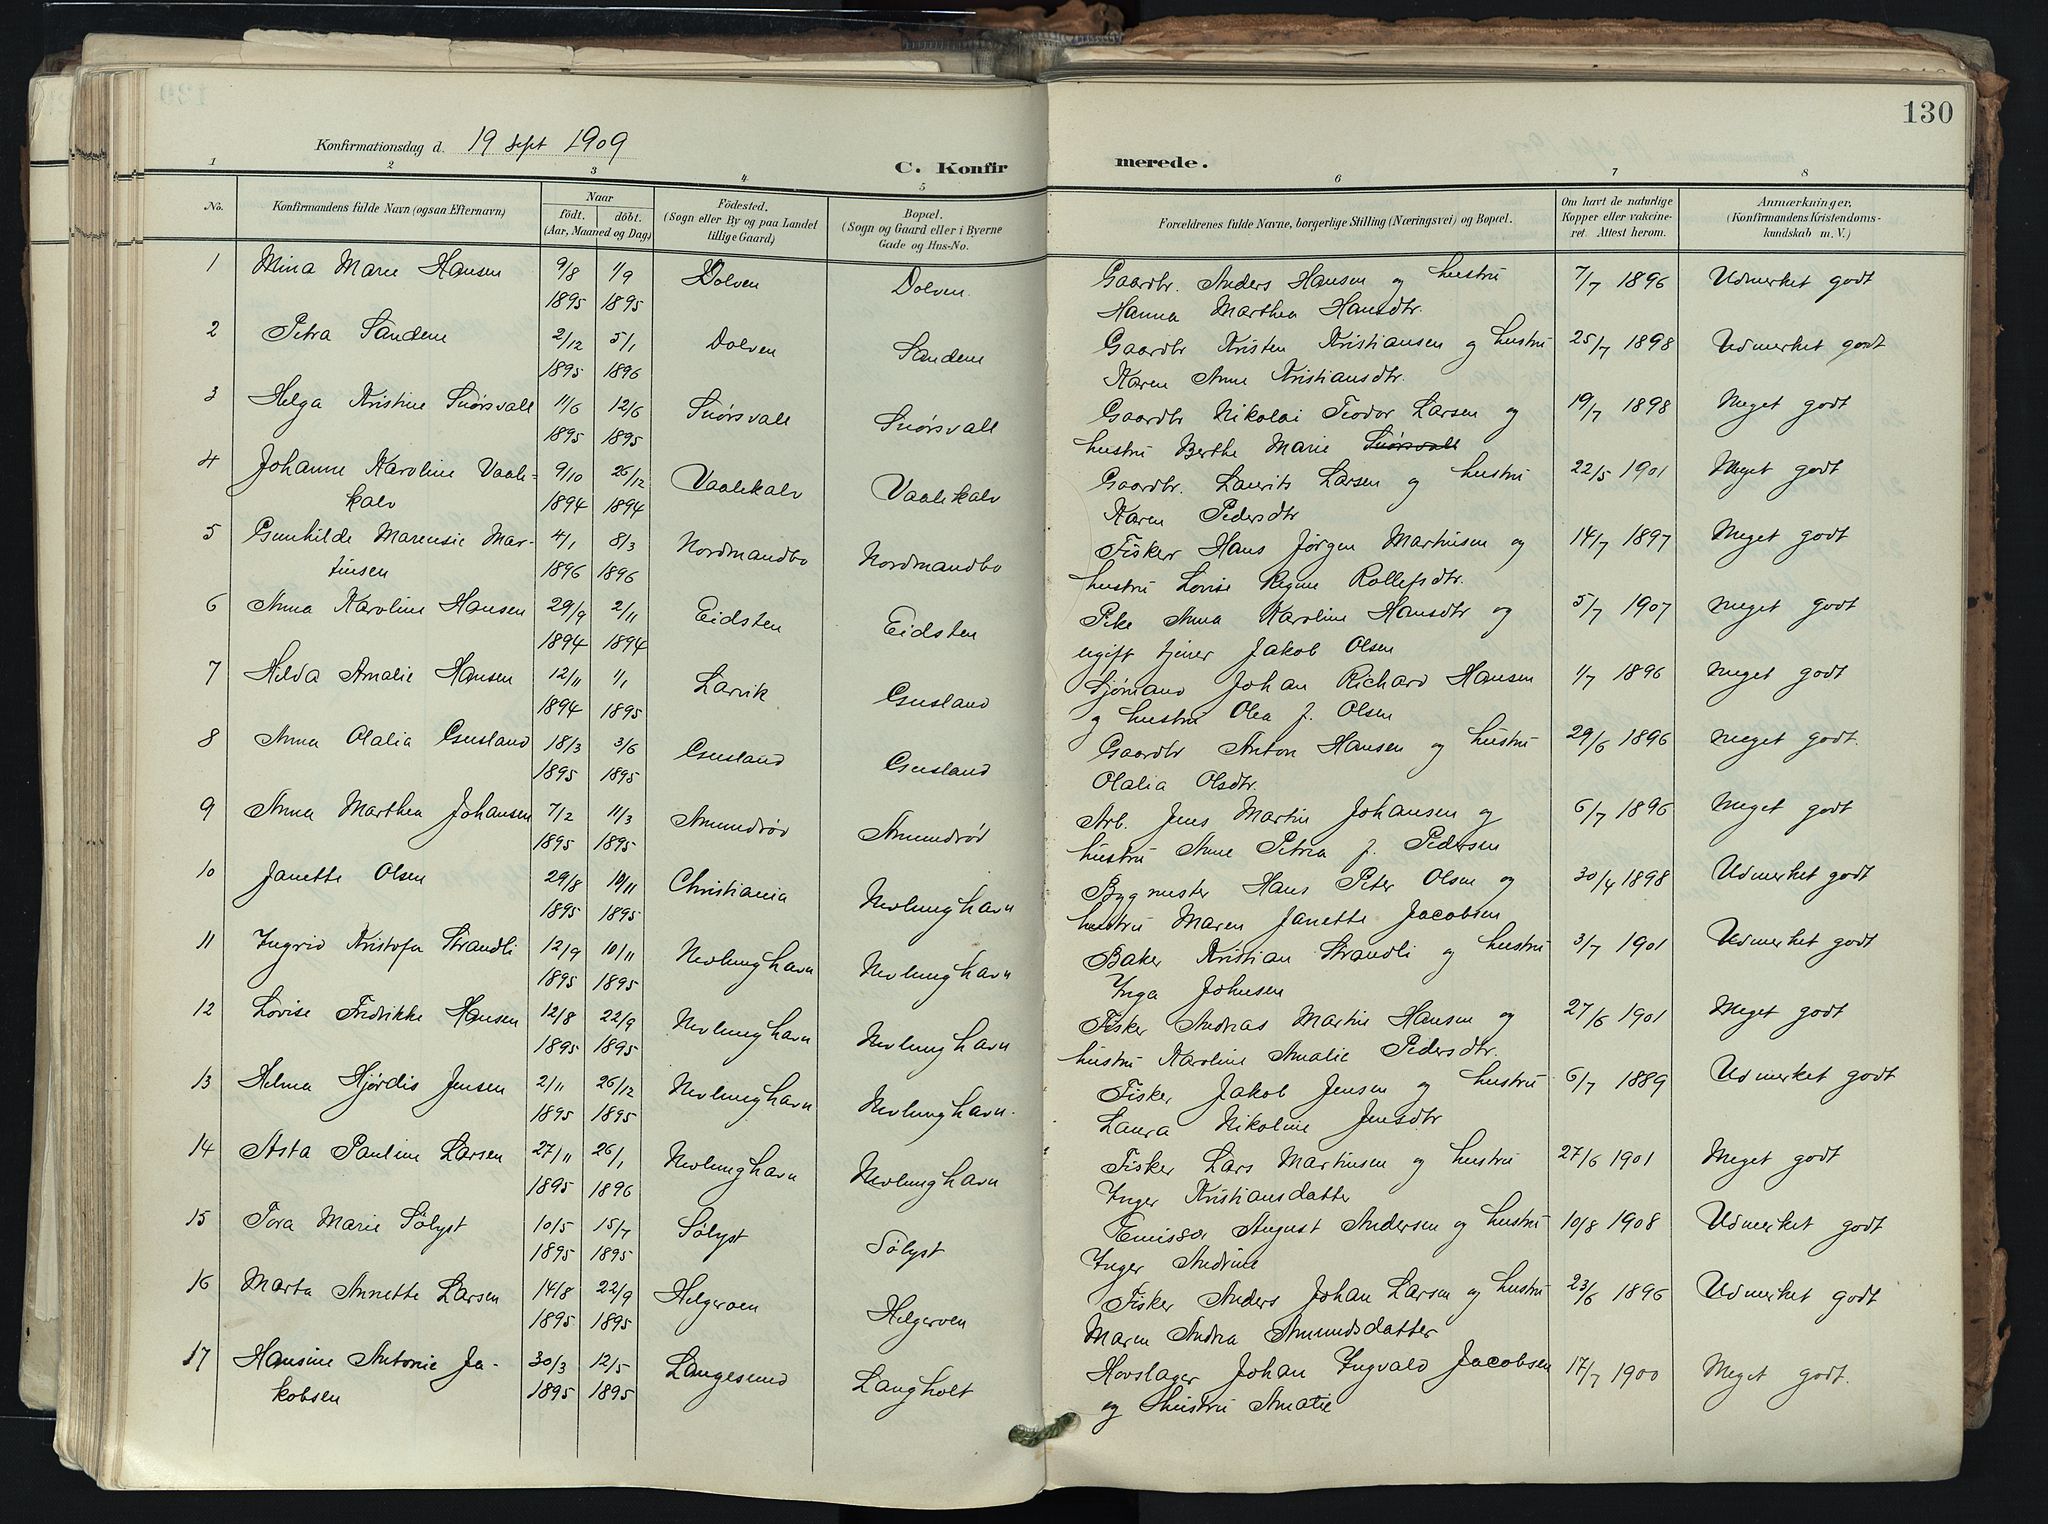 130
Konfirmationsdag d. 19 Sept 1909
C. Konfirmerede.
1 2 3 4 5 6 7 8
No. Konfirmandens fulde Navn (ogsaa Efternavn) Naar födt. döbt. (Aar, Maaned og Dag) Födested. (Sogn eller By og paa Landet tillige Gaard) Bopæl. (Sogn og Gaard eller i Byerne Gade og Hus-No. Forældrenes fulde Navne, borgerlige Stilling (Næringsvei) og Bopæl. Om havt de naturlige Kopper eller vakcineret. Attest herom. Anmærkninger. (Konfirmandens Kristendomskundskab m. V.)
1 Mina Marie Hansen 9/8 1/9 Dolven Dolven Gaardbr. Anders Hansen og hustru 7/7 1896 Udmerket godt
1895 1895 Hanna Marthea Hansdtr.
2 Petra Sandene 2/12 5/1 Dolven Sandene Gaardbr Kristen Kristiansen og hustru 25/7 1898 Udmerket godt
1895 1896 Karen Anne Kristiansdtr.
3 Helga Kristine Snørsvall 11/6 12/6 Snørsvall Snørsvall Gaardbr Nikolai Teodor Larsen og 19/7 1898 Meget godt
1895 1895 hustru Berthe Marie Snørsvall
4 Johanne Karoline Vaale- 9/10 26/12 Vaalekalv Vaalekalv Gaardbr. Laurits Larsen og hustru 22/5 1901 Meget godt
kalv 1894 1894 Karen Pedersdtr
5 Gunhilde Marensie Mar- 4/1 8/3 Nordmandbo Nordmandbo Fisker Hans Jørgen Martinsen og 14/7 1897 Meget godt
tinsen 1896 1896 hustru Lovise Regine Rollefsdtr.
6 Anna Karoline Hansen 29/9 2/11 Eidsten Eidsten Pike Anna Karoline Hansdtr og 5/7 1907 meget godt
1894 1894 ugift tjener Jakob Olsen
7 Hilda Amalie Hansen 12/11 1/1 Larvik Gusland Sjømand Johan Richard Hansen 1/7 1896 meget godt
1894 1895 og hustru Olea J. Olsen
8 Anna Olalia Gusland 18/3 3/6 Gusland Gusland Gaardbr Anton Hansen og hustru 29/6 1896 meget godt.
1895 1895 Olalia Olsdtr.
9 Anna Marthea Johansen 7/2 11/3 Amundrød Amundrød Arb. Jens Martin Johansen og 6/7 1896 Meget godt
1895 1895 hustru Anne Petria J. Pedersen
10 Janette Olsen 29/8 10/11 Christiania Nevlunghavn Bygmester Hans Peter Olsen og 30/4 1898 Udmerket godt
1895 1895 hustru Maren Janette Jacobsen
11 Ingrid Kristofa Strandli 12/9 10/11 Nevlunghavn Nevlunghavn Baker Kristian Strandli og hustru 3/7 1901 Udmerket godt
1895 1895 Inga Johnsen
12 Lovise Fredrikke Hansen 12/8 22/9 Nevlunghavn Nevlunghavn Fisker Andreas Martin Hansen og 27/6 1901 Meget godt
1895 1895 hustru Karoline Amalie Pedersdtr.
13 Helma Hjørdis Jensen 2/11 26/12 Nevlunghavn Nevlunghavn. Fisker Jakob Jensen og hustru 6/7 1889 Udmerket godt
1895 1895 Laura Nikoline Jensdtr
14 Asta Pauline Larsen 27/11 26/1 Nevlunghavn Nevlunghavn Fisker Lars Martinsen og hustru 27/6 1901 Meget godt
1895 1896 Inger Kristiansdatter
15 Tora Marie Sølyst 10/5 15/7 Sølyst Sølyst Emissær August Andersen og hustru 10/8 1908 Udmerket godt
1895 1895 Inger Andrine
16 Marta Annette Larsen 14/8 22/9 Helgeroen Helgeroen Fisker Anders Johan Larsen og hustru 23/6 1896 Udmerket godt
1895 1895 Maren Andrea Amundsdatter
17 Hansine Antonie Ja- 30/3 12/5 Langesund Langholt Hovslager Johan Ingvald Jacobsen 17/7 1900 Meget godt.
kobsen 1895 1895 og hustru Amalie